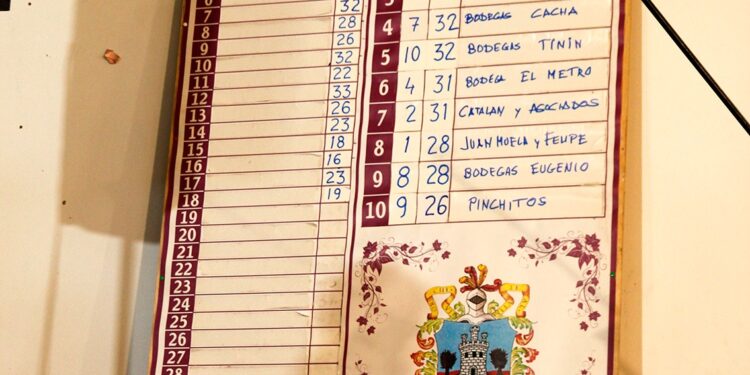 6
7 32
8 28
9 26
10 32
11 22
12 33
13 26
14 23
15 18
16 16
17 23
18 19
19
20
21
22
23
24
25
26
27
28
3
4 7 32 BODEGAS CACHA
5 10 32 BODEGAS TININ
6 4 31 BODEGA EL METRO
7 2 31 CATALAN Y ASOCIADOS
8 1 28 JUAN MUELA Y FELIPE
9 8 28 BODEGAS EUGENIO
10 9 26 PINCHITOS